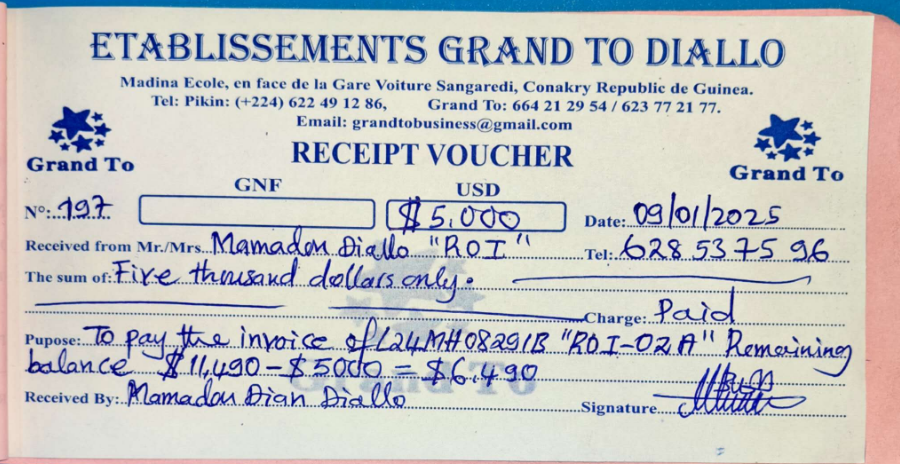 ETABLISSEMENTS GRAND TO DIALLO
Madina Ecole, en face de la Gare Voiture Sangaredi, Conakry Republic de Guinea.
Tel: Pikin: (+224) 622 49 12 86, Grand To: 664 21 29 54 / 623 77 21 77.
Email: grandtobusiness@gmail.com
Grand To
RECEIPT VOUCHER
Grand To
GNF USD
N°: 197 $5.000 Date: 09/01/2025
Received from Mr./Mrs. Mamadou Diallo "ROI" Tel: 628 53 75 96
The sum of: Five thousand dollars only.
Charge: Paid
Pupose: To pay the invoice of L24MH08291B "ROI-02A" Remaining
balance $11,490 - $5000 = $6.490
Received By: Mamadou Dian Diallo Signature